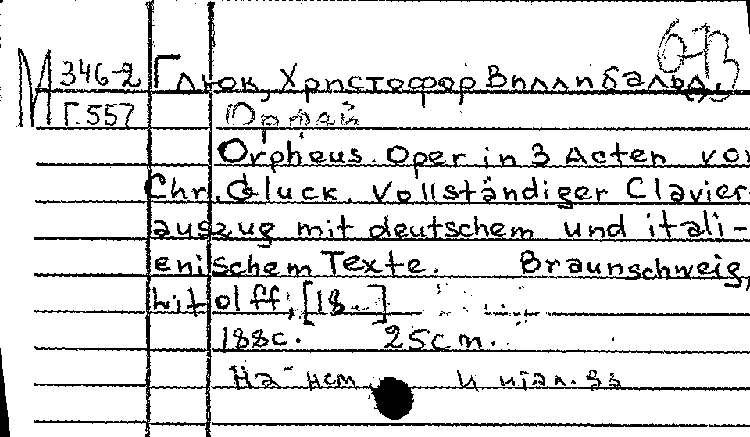 М 346-2 Глюк, Христофор Виллибальд.
Г.557 Орфей
Orpheus. Oper in 3 Acten von
Chr. Gluck. Vollständiger Clavier-
auszug mit deutschem und itali-
enischem Texte. Braunschweig,
Litolff, [18..]
188с. 25cm.
На нем. и итал. яз